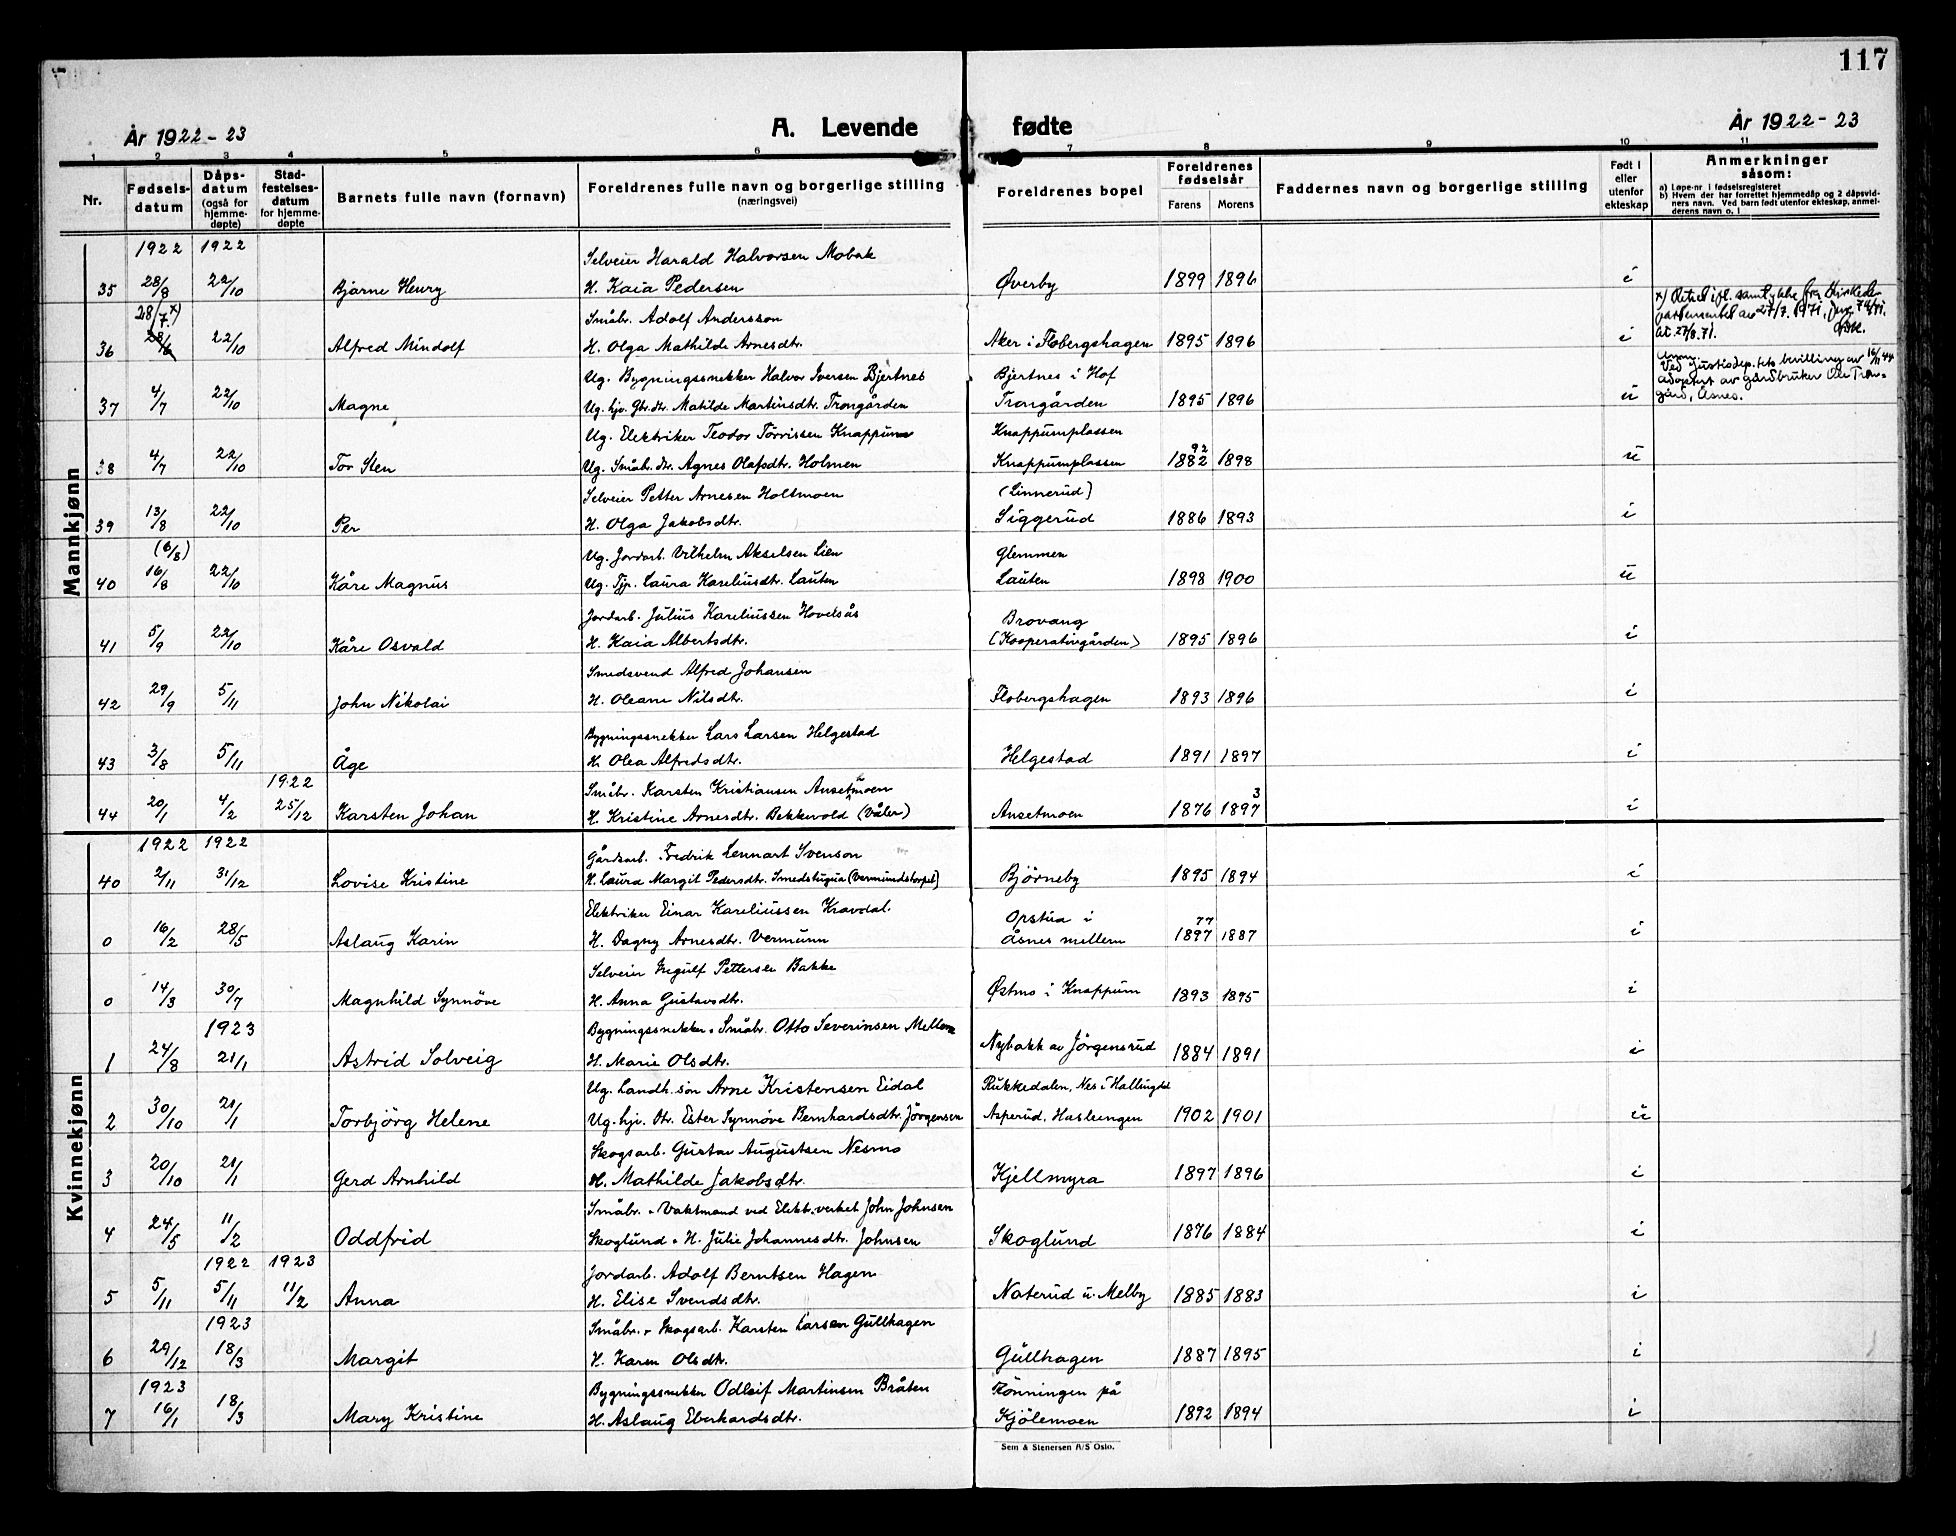 117
År 1922-23
A. Levende fødte
År 1922-23
1 2 3 4 5 6 7 8 9 10 11
Nr.
Fødsels-
datum
Dåps-
datum
(også for
hjemme-
døpte)
Stad-
festelses-
datum
for hjemme-
døpte
Barnets fulle navn (fornavn)
Foreldrenes fulle navn og borgerlige stilling
(næringsvei)
Foreldrenes bopel
Foreldrenes
fødselsår
Farens Morens
Faddernes navn og borgerlige stilling
Født i
eller
utenfor
ekteskap
Anmerkninger
såsom:
a) Løpe-nr i fødselsregisteret
b) Hvem der har forrettet hjemmedåp og 2 dåpsvid-
ners navn. Ved barn født utenfor ekteskap, anmel-
derens navn o. l
Mannkjønn
1922 1922 Selveier Harald Halvorsen Mobak
35 28/8 22/10 Bjarne Henry H. Kaia Pedersen Øverby 1899 1896 i
28/7 x) Småbr. Adolf Andersson x) Rettet ifl. samtykke fra Kirkede-
partementet av 27/7. 1971.
36 28/6 22/10 Alfred Mindolf H. Olga Mathilde Arnesdtr. Aker i Flobergshagen 1895 1896 i
Ug. Bygningssnekker Halvor Iversen Bjertnes Bjertnes i Hof Ved Justisdep.tets bevilling av 16/11 44
37 4/7 22/10 Magne Ug. hjv. Gbr.dtr. Matilde Martinsdtr. Trongården Trongården 1895 1896 u adoptert av gårdbruker Ole Tron-
gård, Åsnes.
Ug. Elektriker Teodor Torrissen Knappum Knappumplassen 92
38 4/7 22/10 Tor Sten Ug. Småb. dtr. Agnes Olafsdtr. Holmen Knappumplassen 1882 1898 u
Selveier Petter Arnesen Holtmoen (Linnerud)
39 13/8 22/10 Per H. Olga Jakobsdtr. Siggerud 1886 1893 i
(6/8) Ug. Jordarb. Vilhelm Akselsen Lien Glemmen
40 16/8 22/10 Kåre Magnus Ug. Tjp. Laura Kareliusdtr. Lauten Lauten 1898 1900 u
Jordarb. Julius Kareliussen Hovelsås Brovang
41 5/9 22/10 Kåre Osvald H. Kaia Albertsdtr. (Kooperativgården) 1895 1896 i
Smedsvend Alfred Johansen
42 29/9 5/11 John Nikolai H. Oleane Nilsdtr. Flobergshagen 1893 1896 i
Bygningssnekker Lars Larsen Helgestad
43 3/8 5/11 Åge H. Olea Alfredsdtr. Helgestad 1891 1897 i
1922 Småbr. Karsten Kristiansen Ansetmoen 3
44 20/1 4/2 25/12 Karsten Johan H. Kristine Arnesdtr. Bekkevold (Våler) Ansetmoen 1876 1897 i
Kvinnekjønn
1922 1922 Gårdsarb. Fredrik Lennart Svenson
40 2/11 31/12 Lovise Kristine H. Laura Margit Pedersdtr. Smedstugua (Vermundstorpet) Björneby 1895 1894 i
Elektriker Einar Kareliussen Kravdal. Opstua i 77
0 16/2 28/5 Aslaug Karin H. Dagny Arnesdtr. Vermunn Åsnes mellem 1897 1887 i
Selveier Ingulf Pettersen Bakke
0 14/3 30/7 Magnhild Synnöve H. Anna Gustavsdtr. Østmo i Knappum 1893 1895 i
1923 Bygningssnekker + Småbr. Otto Severinsen Mellem
1 24/8 21/1 Astrid Solveig H. Marie Olsdtr. Nybakk av Jörgensrud 1884 1891 i
Ug. Landh. sön Arne Kristensen Eidal Rukkedalen, Nes i Hallingd
2 30/10 21/1 Torbjörg Helene Ug. hjv. dtr. Ester Synnöve Bernhardsdtr. Jörgensen Asperud, Haslungen 1902 1901 u
Skogsarb. Gustav Augustsen Nesmo
3 20/10 21/1 Gerd Arnhild H. Mathilde Jakobsdtr. Kjellmyra 1897 1896 i
Småbr. + Vaktmand ved Elekt.verket John Johnsen
4 24/5 11/2 Oddfrid Skoglund + H. Julie Johannesdtr. Johnsen Skoglund 1876 1884 i
1922 1923 Jordarb. Adolf Berntsen Hagen
5 5/11 5/11 11/2 Anna H. Elise Svendsdtr. Naterud u. Melby 1885 1883 i
1923 Småbr. + Skogsarb. Karsten Larsen Gullhagen
6 29/12 18/3 Margit H. Karen Olsdtr. Gullhagen 1887 1895 i
1923 Bygningssnekker Odleif Martinsen Bråten Rönningen på
7 16/1 18/3 Mary Kristine H. Aslaug Eberhardsdtr. Kjölemoen 1892 1894 i
Sem & Stenersen A/S Oslo.